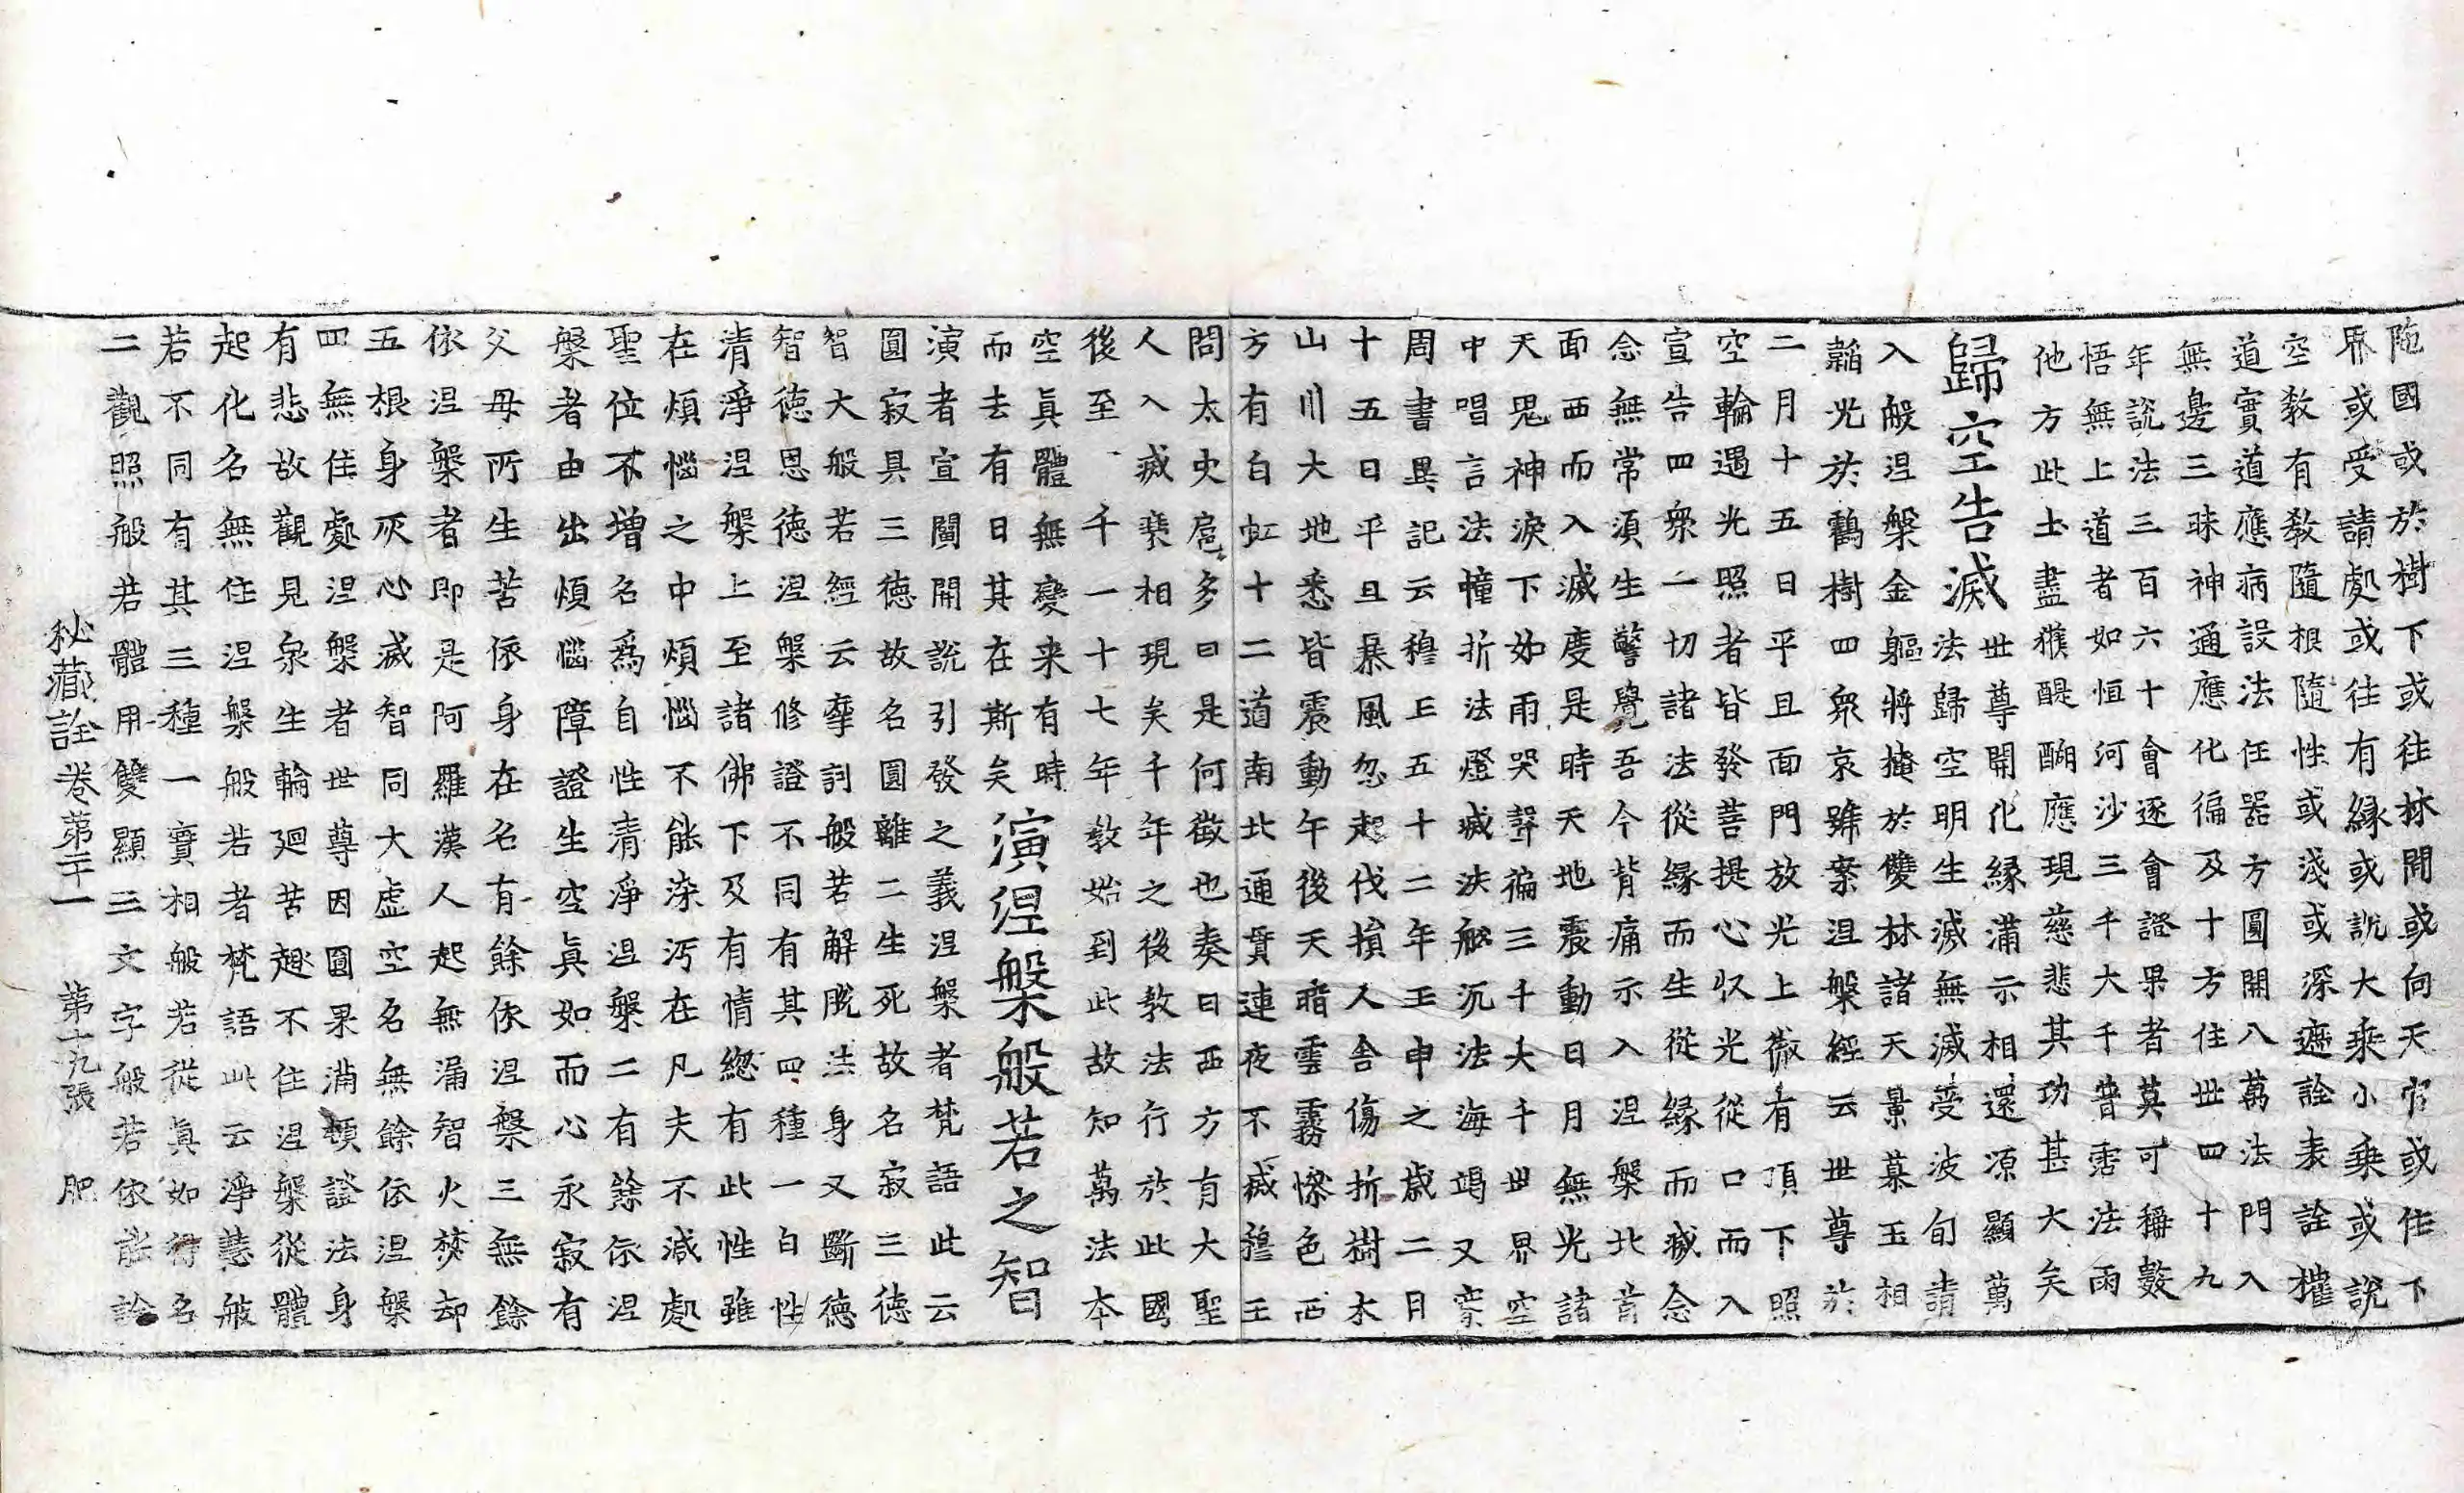 陁國或於樹下或往林間或向天宮或住下
界或受請處或往有縁或說大乘小乘或說
空教有教隨根隨性或淺或深遮詮表詮權
道實道應病設法任器方圓開八萬法門入
無邊三昧神通應化徧及十方住世四十九
年說法三百六十會逐會證果者莫可稱數
悟無上道者如恒河沙三千大千普霑法雨
他方此土盡獲醍醐應現慈悲其功甚大矣
歸空告滅世尊開化縁滿示相還源顯萬
法歸空明生滅無滅受波旬請
入般涅槃金軀將掩於雙林諸天景慕玉相
韜光於鶴樹四衆哀號案涅槃經云世尊於
二月十五日平旦面門放光上徹有頂下照
空輪遇光照者皆發菩提心収光從口而入
宣告四衆一切諸法從縁而生從縁而滅念
念無常須生警覺吾今背痛示入涅槃北首
面西而入滅度是時天地震動日月無光諸
天思神淚下如雨哭聲徧三千大千世界空
中唱言法幢折法燈滅法船沉法海竭又案
周書異記云穆王五十二年壬申之歲二月
十五日平旦暴風忽起伐損人舍傷折樹木
山川大地悉皆震動午後天暗雲霧慘色西
方有白虹十二道南北通貫連夜不滅穆王
問太史扈多曰是何徵也奏曰西方有大聖
人入滅衰相現矣千年之後教法行於此國
後至一千一十七年教始到此故知萬法本
空眞體無變来有時
而去有日其在斯矣演𣵀槃般若之智
演者宣闡開說引發之義涅槃者梵語此云
圓寂具三德故名圓離二生死故名寂三德
智大般若經云摩訶般若解脫法身又斷德
智德恩德涅槃修證不同有其四種一自性
清淨涅槃上至諸佛下及有情緫有此性雖
在煩惱之中煩惱不能染汚在凡夫不減處
聖位不增名爲自性清淨涅槃二有餘依涅
槃者由出煩惱障證生空眞如而心永寂有
父母所生苦依身在名有餘依涅槃三無餘
依涅槃者即是阿羅漢人起無漏智火焚却
五根身灰心滅智同大虛空名無餘依涅槃
四無住處涅槃者世尊因圓果滿頓證法身
有悲故觀見衆生輪迴苦趣不住涅槃從體
起化名無住涅槃般若者梵語此云淨慧般
若不同有其三種一實相般若從眞如得名
二觀照般若體用雙顯三文字般若依能詮
秘藏詮卷第二十一　第十九張　肥